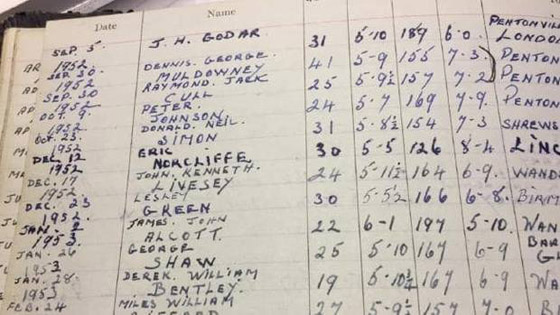 Date Name
PENTONVIL
SEP. 5 J. H. GODAR 31 5-10 189 6-0. LONDON
1952 DENNIS. GEORGE. 41 5-9 155 7-3. PENTON
SEP 30. MULDOWNEY
1952 RAYMOND. JACK 25 5-9½ 157 7-2 PENTON
SEP. 30 CULL
1952 PETER. 24 5-7 169 7-9. PENTON
OCT. 9. JOHNSON
1952 DONALD. NEIL. 31 5-8½ 154 7-3 SHREWS
OCT. 23. SIMON
1952 ERIC. 30 5-5 126 8-4 LINC
DEC. 12 NORCLIFFE
1952 JOHN. KENNETH. 24 5-11½ 164 6-9. WAND
DEC. 17 LIVESEY
1952 LESLEY 30 5-5½ 166 6-8. BIRM
DEC. 23 GREEN
1952. JAMES. JOHN 22 6-1 197 5-10. WAN
JAN. 2 ALCOTT. BAR
1953. GEORGE 25 5-10 167 6-9 GL
JAN. 26 SHAW
1953 DEREK. WILLIAM 19 5-10½ 167 6-9 WA
JAN. 28. BENTLEY.
1953 MILES WILLIAM 27 5-9½ 157 7-0
FEB. 24